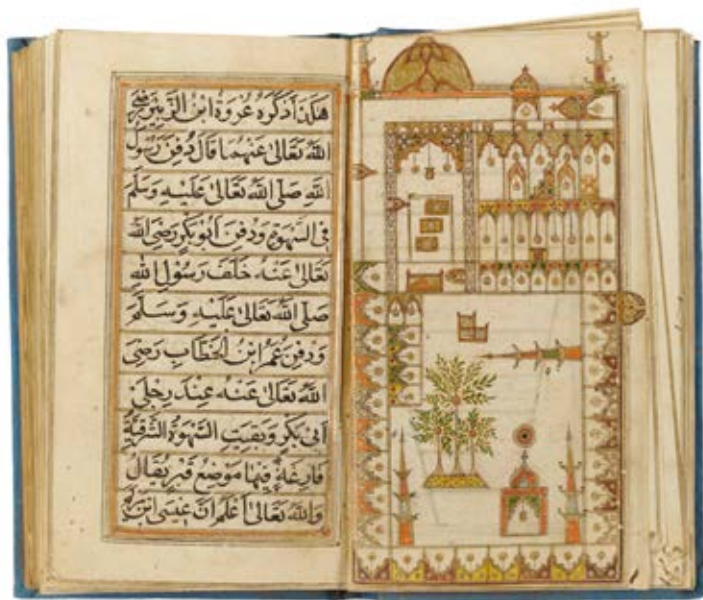 هكذا ذكره عُرْوَةُ ابْنُ الزُّبَيْرِ رَضِيَ
اللهُ تَعَالٰى عَنْهُمَا قَالَ دُفِنَ رَسُوْلُ
اللهِ صَلَّى اللهُ تَعَالٰى عَلَيْهِ وَسَلَّمَ
فِى السَّهْوَةِ وَدُفِنَ اَبُوْبَكْرٍ رَضِىَ اللهُ
تَعَالٰى عَنْهُ خَلْفَ رَسُوْلِ اللهِ
صَلَّى اللهُ تَعَالٰى عَلَيْهِ وَسَلَّمَ
وَدُفِنَ عُمَرُ ابْنُ الْخَطَّابِ رَضِىَ
اللهُ تَعَالٰى عَنْهُ عِنْدَ رِجْلَىْ
اَبِىْ بَكْرٍ وَبَقِيَتِ السَّهْوَةُ الشَّرْقِيَّةُ
فَارِغَةٌ فِيْهَا مَوْضِعُ قَبْرٍ يُقَالُ
وَاللهُ تَعَالٰى اَعْلَمُ اَنَّ عِيْسَى ابْنَ